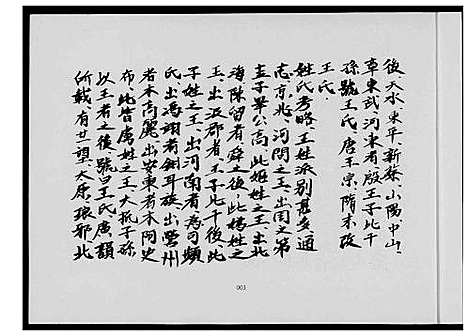 後天水、東平、新蔡、山陽、中山、
章東武、河東者殷王子比干
孫號王氏、唐王宗、隋末改
王氏、
姓氏考略、王姓派別甚多、通
志、京兆、河間之王、出周之第
五子畢公高、此姬姓之王、出北
海陳留者、舜之後、此媯姓之
王、出汲郡者、王子比干後、此
子姓之王、出河南者、為可頻
氏、出馮翊者、鉗耳族、出營州
者、本高麗、出安東者、本阿史
布、此皆虜姓之王、大抵子孫
以王者之後、號曰王氏、廣韻
所載、有廿一望、太原、琅邪、北
003